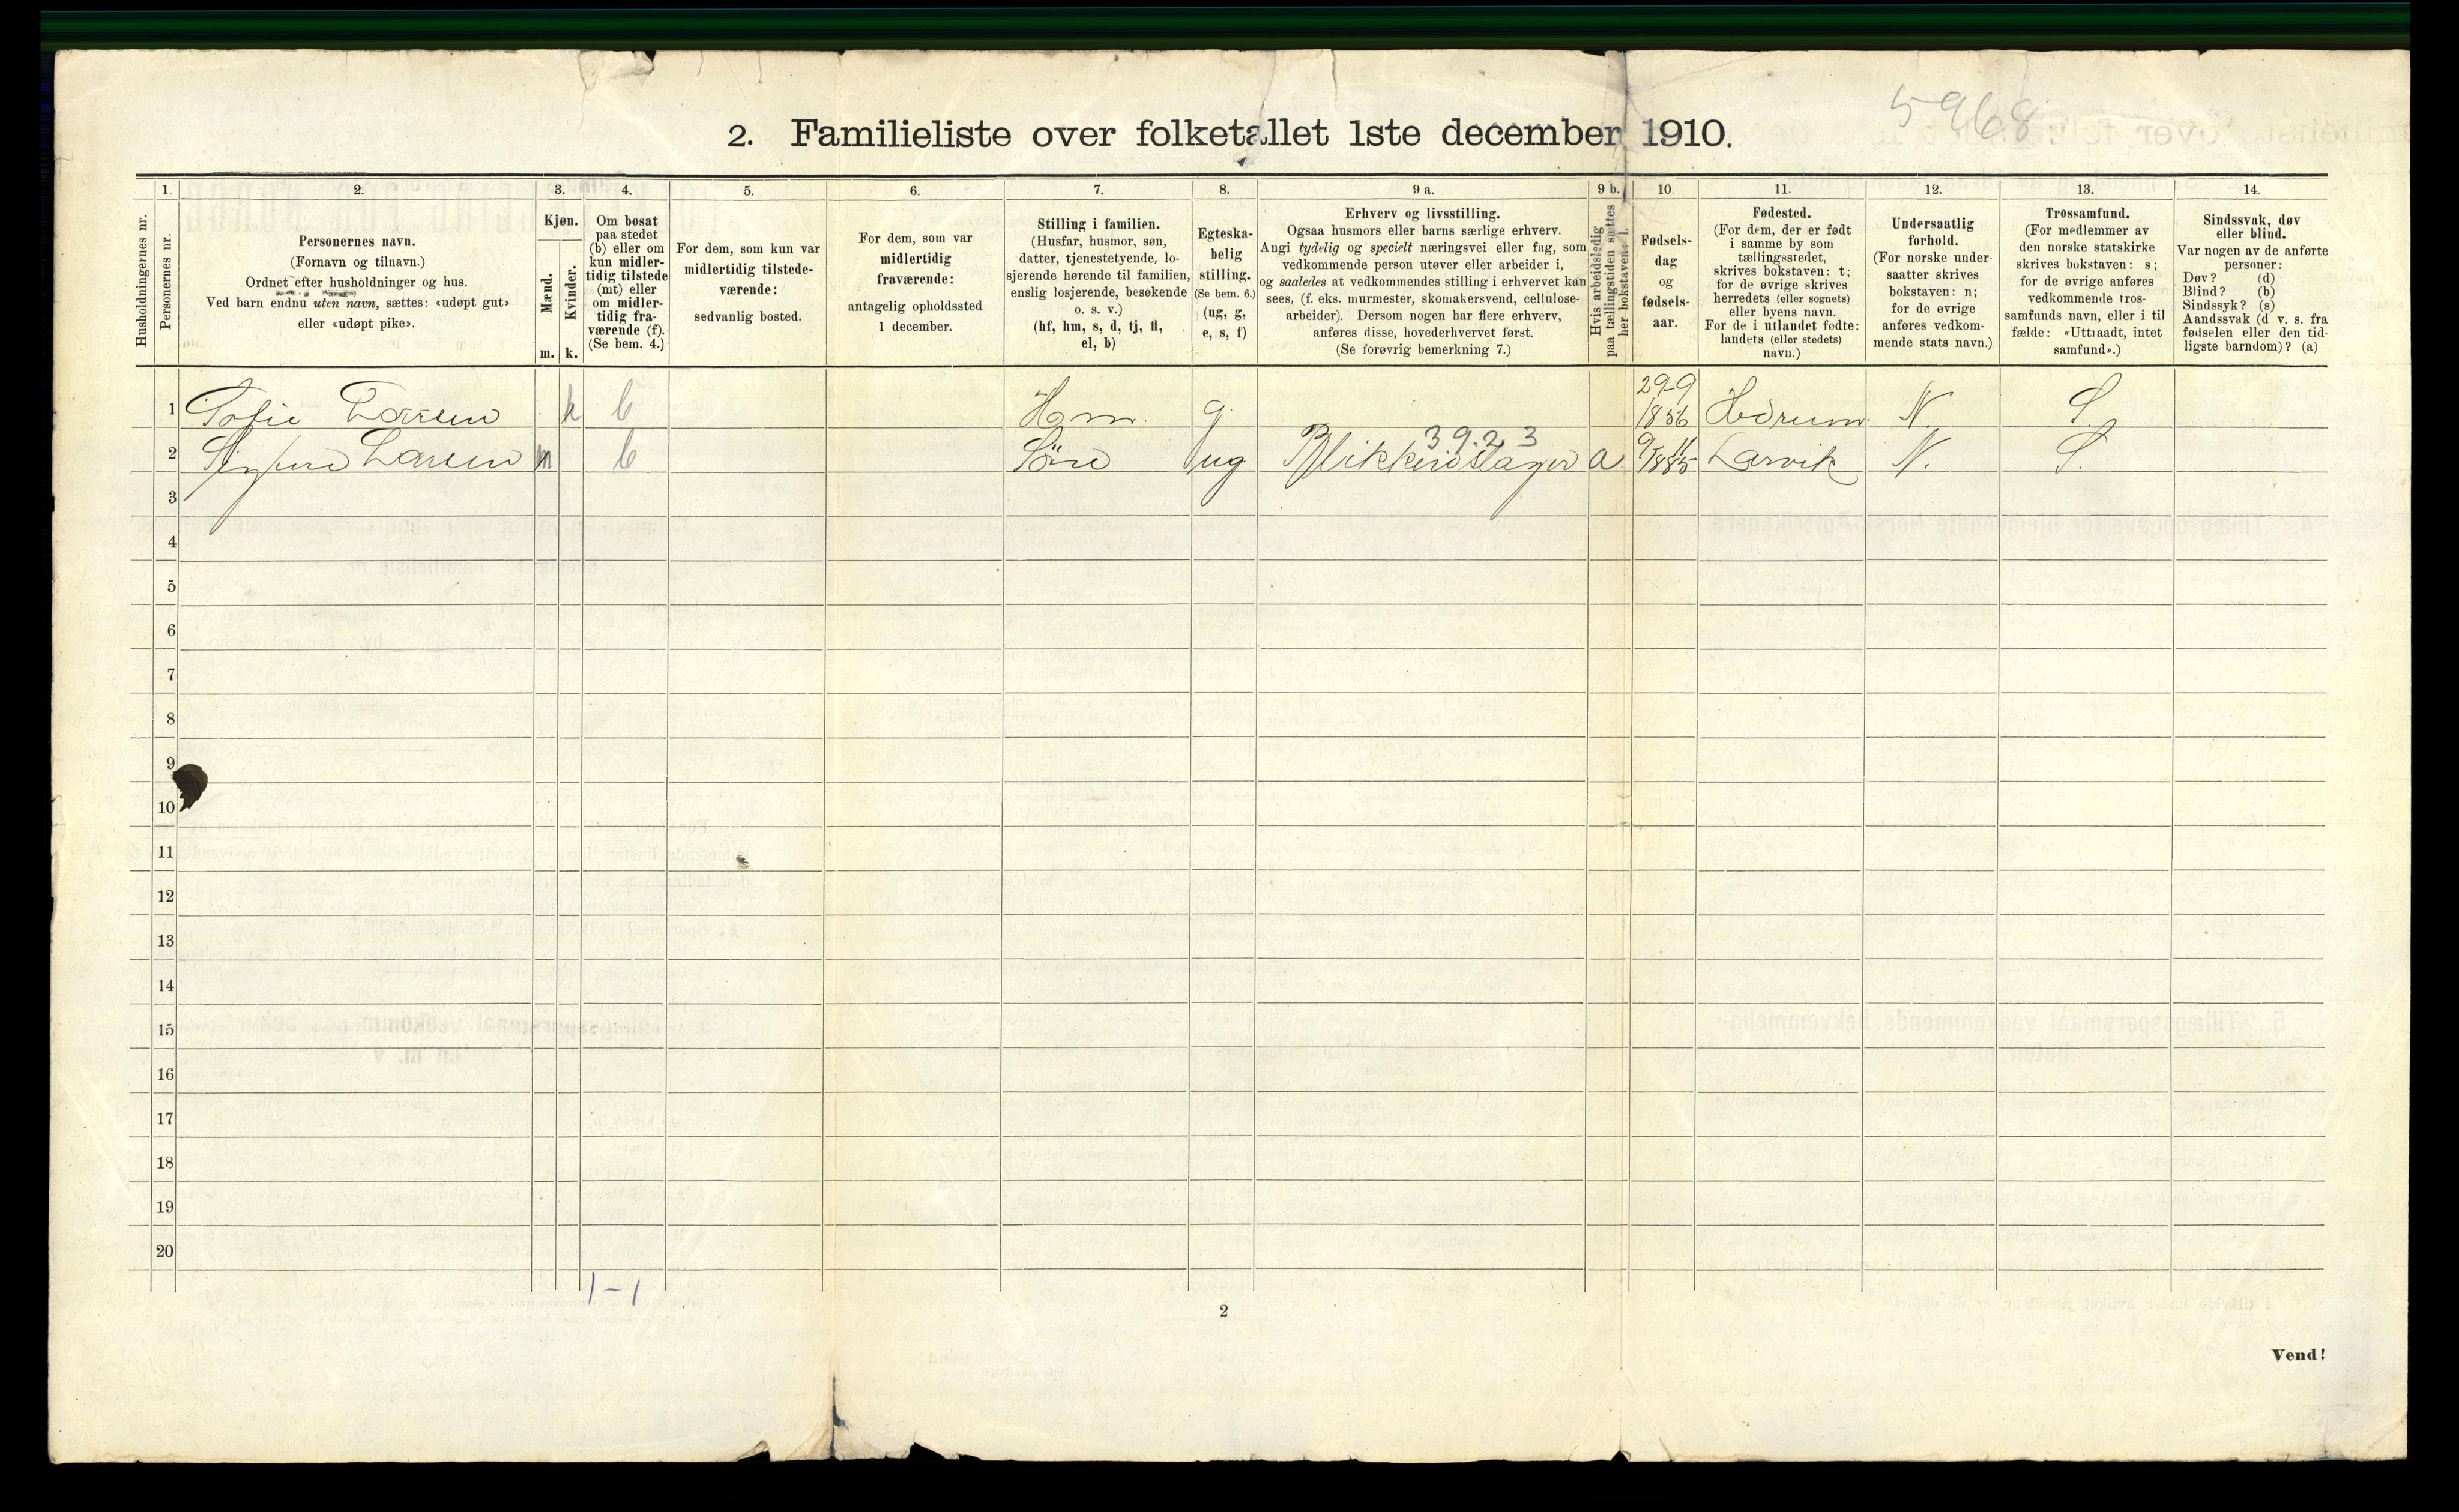 5968
2. Familieliste over folketallet 1ste december 1910.
1. 2. 3. 4. 5. 6. 7. 8. 9 a. 9 b. 10. 11. 12. 13. 14.
Husholdningernes nr.
Personernes nr.
Personernes navn.
(Fornavn og tilnavn.)
Ordnet efter husholdninger og hus.
Ved barn endnu uten navn, sættes: «udøpt gut»
eller «udøpt pike».
Kjøn.
Mænd.
Kvinder.
m. k.
Om bosat
paa stedet
(b) eller om
kun midler-
tidig tilstede
(mt) eller
om midler-
tidig fra-
værende (f).
(Se bem. 4.)
For dem, som kun var
midlertidig tilstede-
værende:
sedvanlig bosted.
For dem, som var
midlertidig
fraværende:
antagelig opholdssted
1 december.
Stilling i familien.
(Husfar, husmor, søn,
datter, tjenestetyende, lo-
sjerende hørende til familien,
enslig losjerende, besøkende
o. s. v.)
(hf, hm, s, d, tj, fl,
el, b)
Egteska-
belig
stilling.
(Se bem. 6.)
(ug, g,
e, s, f)
Erhverv og livsstilling.
Ogsaa husmors eller barns særlige erhverv.
Angi tydelig og specielt næringsvei eller fag, som
vedkommende person utøver eller arbeider i,
og saaledes at vedkommendes stilling i erhvervet kan
sees, (f. eks. murmester, skomakersvend, cellulose-
arbeider). Dersom nogen har flere erhverv,
anføres disse, hovederhvervet først.
(Se forøvrig bemerkning 7.)
Hvis arbeidsledig
paa tællingstiden sættes
her bokstaven: l.
Fødsels-
dag
og
fødsels-
aar.
Fødested.
(For dem, der er født
i samme by som
tællingsstedet,
skrives bokstaven: t;
for de øvrige skrives
herredets (eller sognets)
eller byens navn.
For de i utlandet fødte:
landets (eller stedets)
navn.)
Undersaatlig
forhold.
(For norske under-
saatter skrives
bokstaven: n;
for de øvrige
anføres vedkom-
mende stats navn.)
Trossamfund.
(For medlemmer av
den norske statskirke
skrives bokstaven: s;
for de øvrige anføres
vedkommende tros-
samfunds navn, eller i til
fælde: «Uttraadt, intet
samfund».)
Sindssvak, døv
eller blind.
Var nogen av de anførte
personer:
Døv? (d)
Blind? (b)
Sindssyk? (s)
Aandssvak (d v. s. fra
fødselen eller den tid-
ligste barndom)? (a)
1 Sofie Larsen k b Hm. g. 29-9 1856 Hedrum N. S.
3923
2 Larsen m b Søn ug Blikkenslager a 1885 Larvik N. S.
3
4
5
6
7
8
9
10
11
12
13
14
15
16
17
18
19
20
1-1
2
Vend!